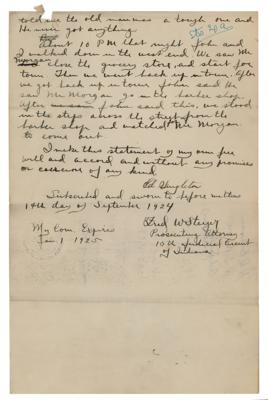 told me the old man was a tough one and
He never got anything.
About 10 P.M. that night John and
I walked down in the west end. We saw Mr
Morgan close the grocery store, and start for
town. Then we went back up in town. After
we got back up in town John said He
saw Mr Morgan go into the barber shop.
After John said this, we stood
in the steps across the street from the
barber shop and watched Mr Morgan
to come out.
I make this statement of my own free
will and accord and without any promises
or coercion of any kind.
Ed Singleton
Subscribed and sworn to before me this
19th day of September 1924
Fred W Steiger
My Com. Expires
Prosecuting Attorney
Jan 1 1925
10th Judicial Circuit
of Indiana